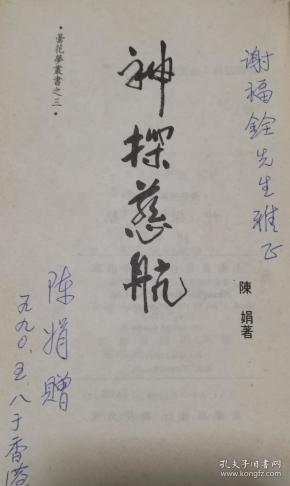 謝福銓先生雅正
·曇花夢叢書之三·
神探慈航
陳娟著
陈娟赠
一九九〇.五.八于香港
孔夫子旧书网